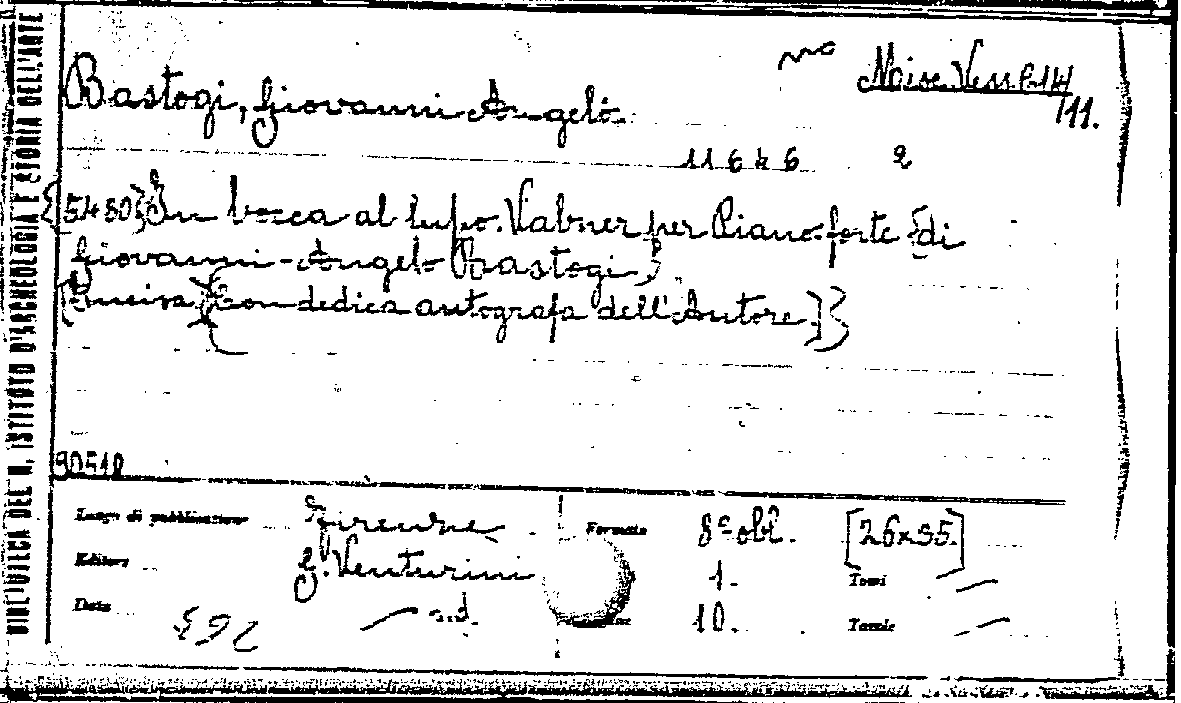 BIBLIOTECA DEL R. ISTITUTO D'ARCHEOLOGIA E STORIA DELL'ARTE
Bastogi, Giovanni Angelo
Misc. Vess. C. 14/11.
11646 2
{5480} In bocca al lupo. Valzer per Pianoforte {di
Giovanni Angelo Bastogi}
{Musica {Con dedica autografa dell'Autore.}}
90518
Luogo di pubblicazione Firenze Formato 8º obl. [26x35]
Editore G. Venturini 1. Tomi —
Data — s.d. 10. Tavole —